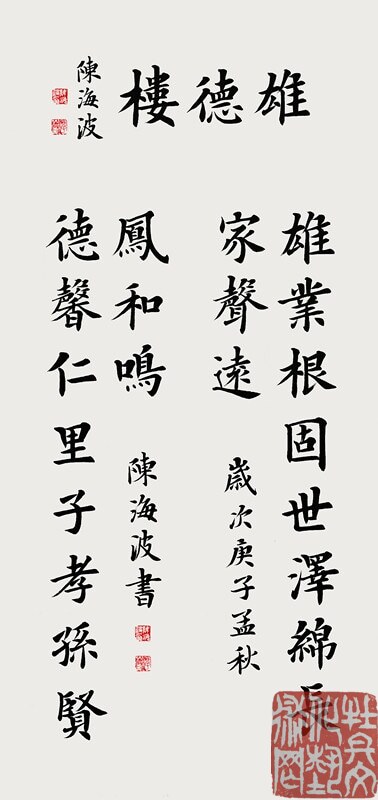 雄德樓
陳海波
雄業根固世澤綿長
家聲遠
歲次庚子孟秋
德馨仁里子孝孫賢
鳳和鳴
陳海波書